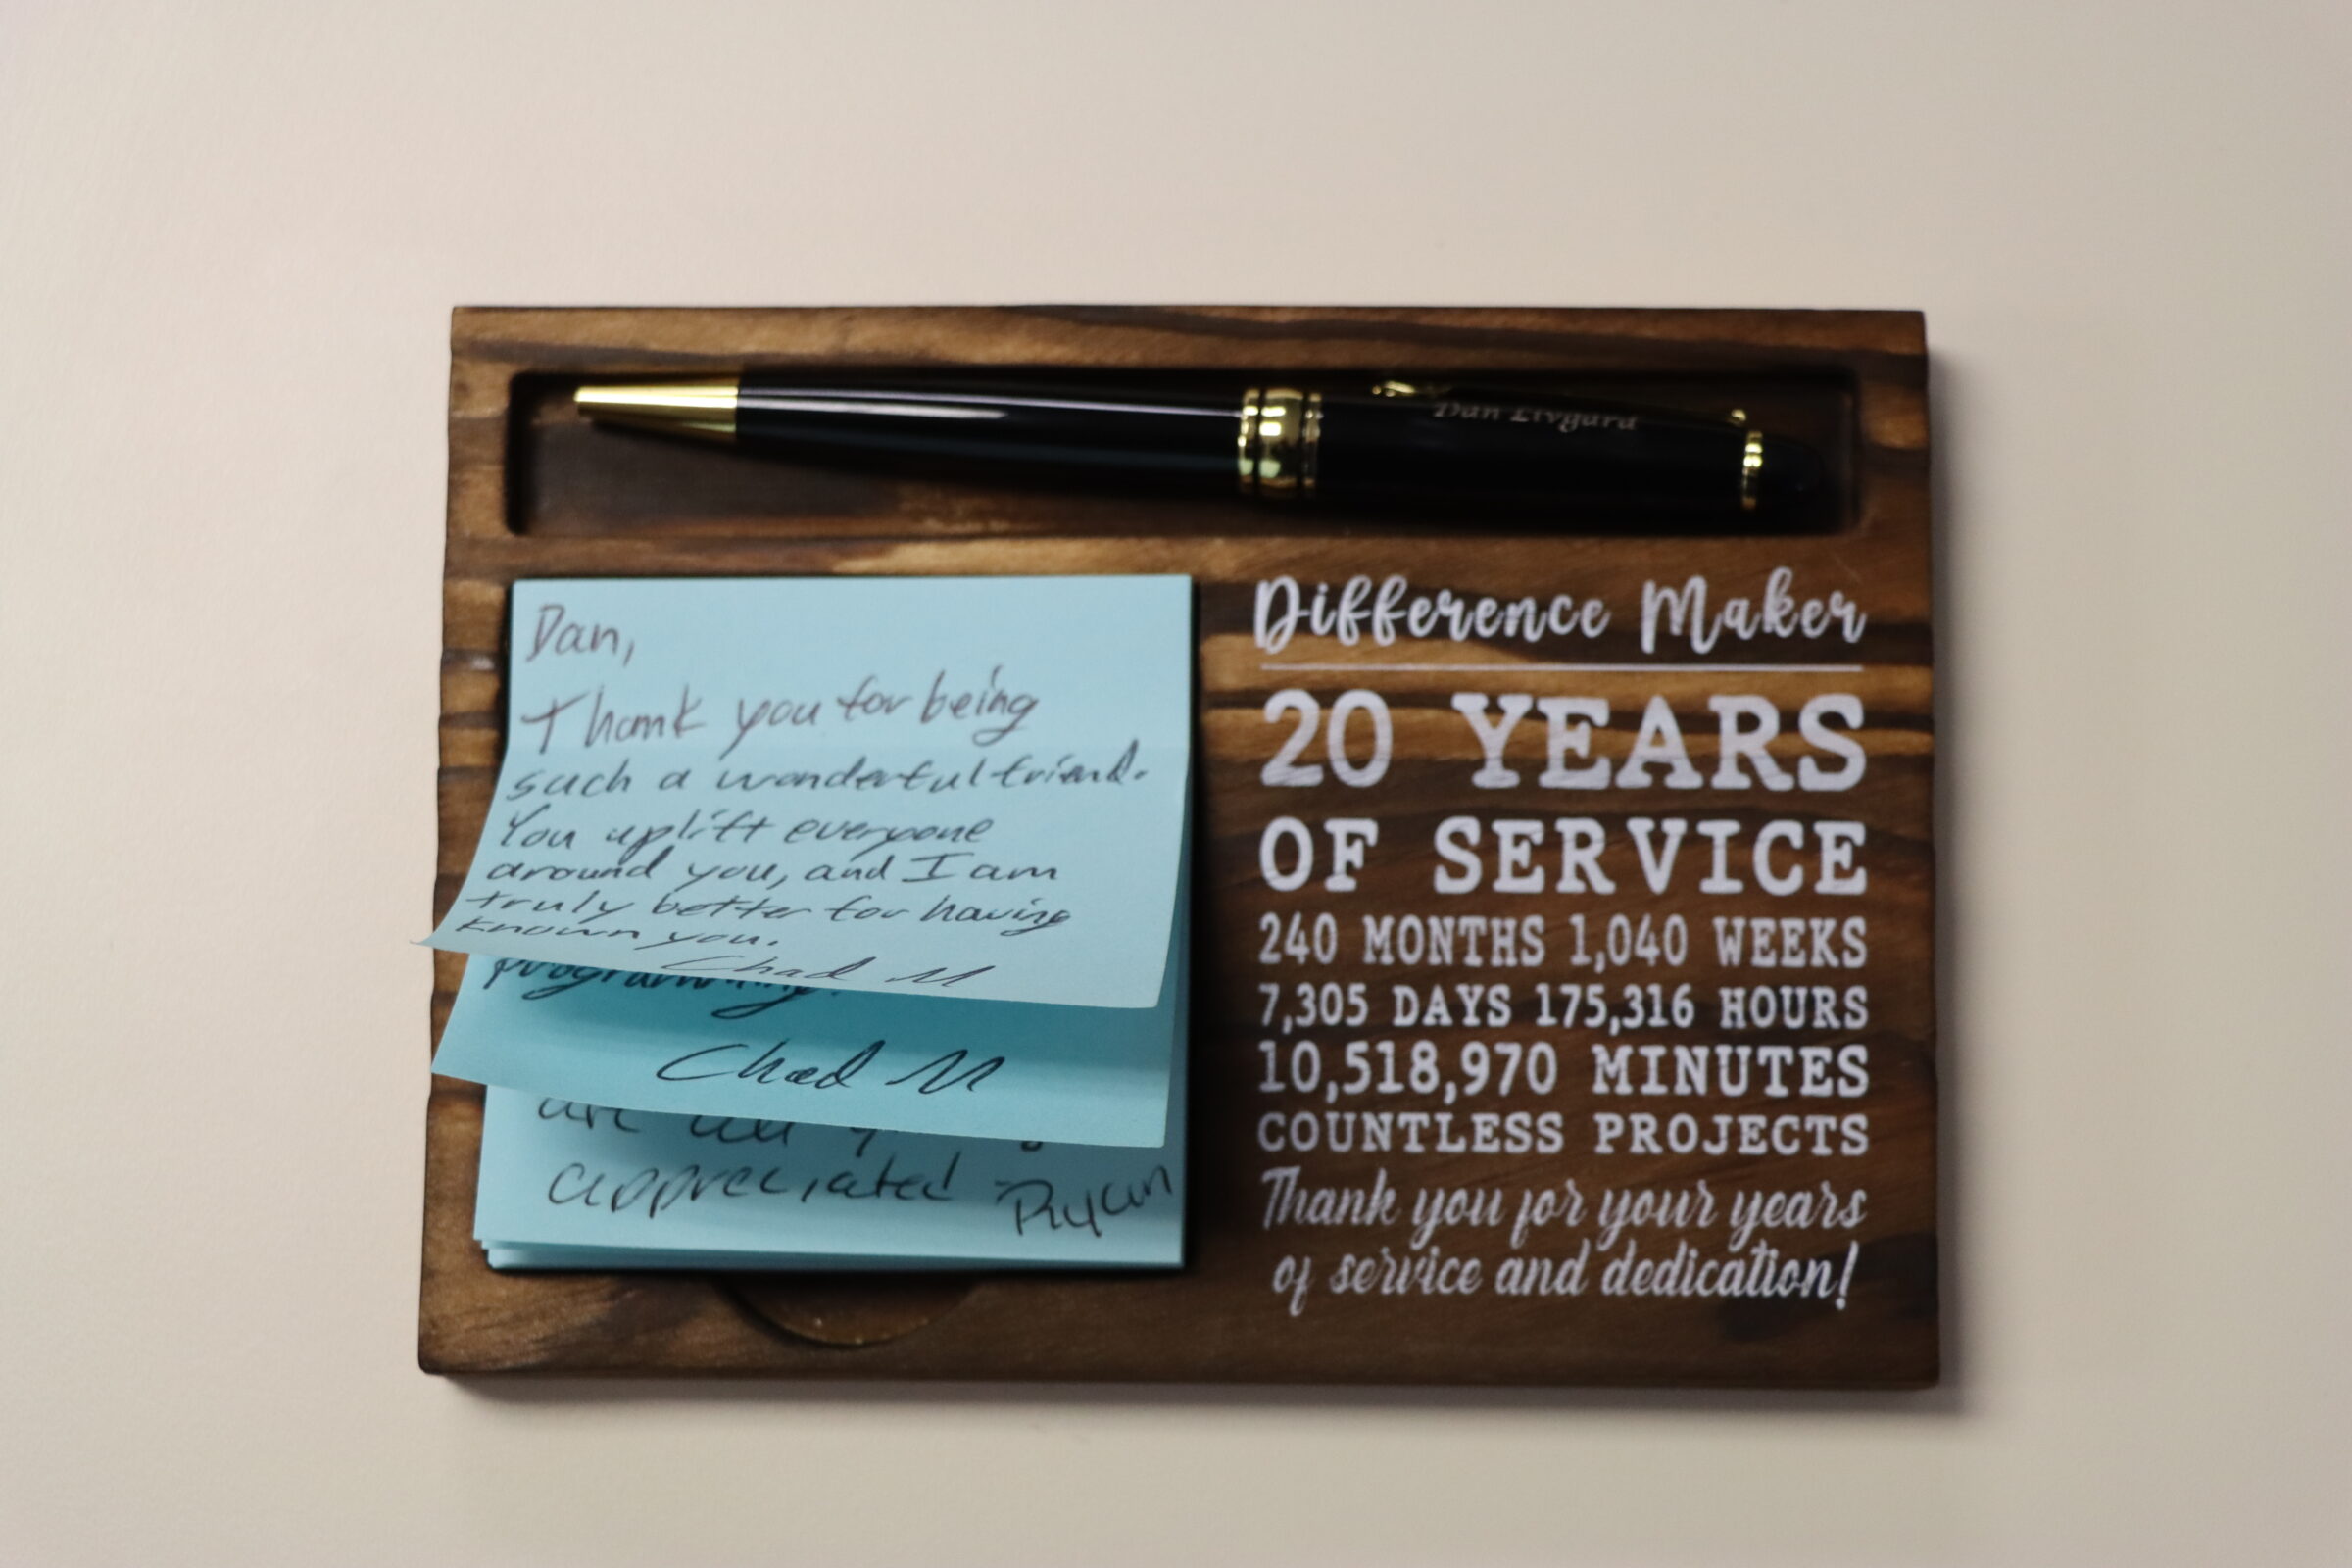 Dan Livgard
Dan,
Thank you for being
such a wonderful friend.
You uplift everyone
around you, and I am
truly better for having
known you.
Chad M
programming.
Chad M
are all
appreciated -Ryan
Difference Maker
20 YEARS
OF SERVICE
240 MONTHS 1,040 WEEKS
7,305 DAYS 175,316 HOURS
10,518,970 MINUTES
COUNTLESS PROJECTS
Thank you for your years
of service and dedication!